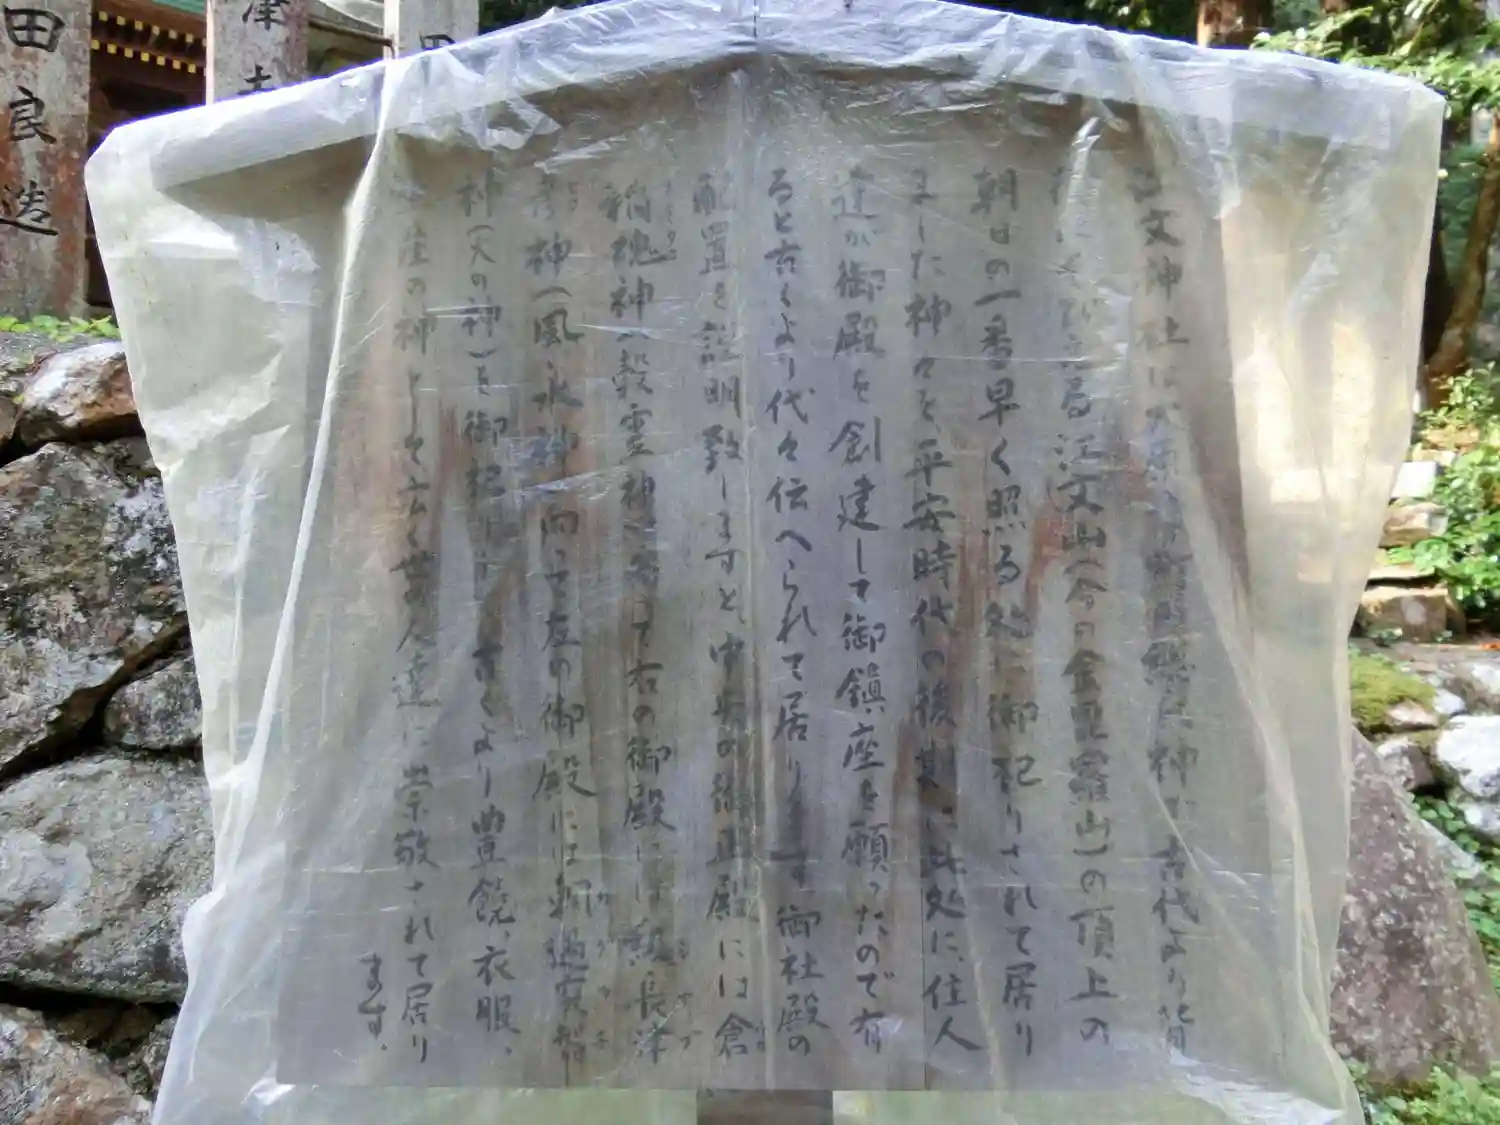 文神社は大原 神 古代より
江文山(今の金毘羅山)の頂上の
朝日の一番早く照る処に御祀りされて居り
ました神々を平安時代の後期に此処に住人
達が御殿を創建して御鎮座を願ったので有
ると古くより代々伝へられて居ります。御社殿の
配置を説明致しますと、中央の御正殿には倉
稲魂神(穀霊神) て右の御殿には級長津
彦神(風水神)向って左の御殿には軻遇突智
神(火の神)を御祀り 古くより豊饒、衣服、
座の神として広く世の人達に崇敬されて居り
ます。
田良造
津